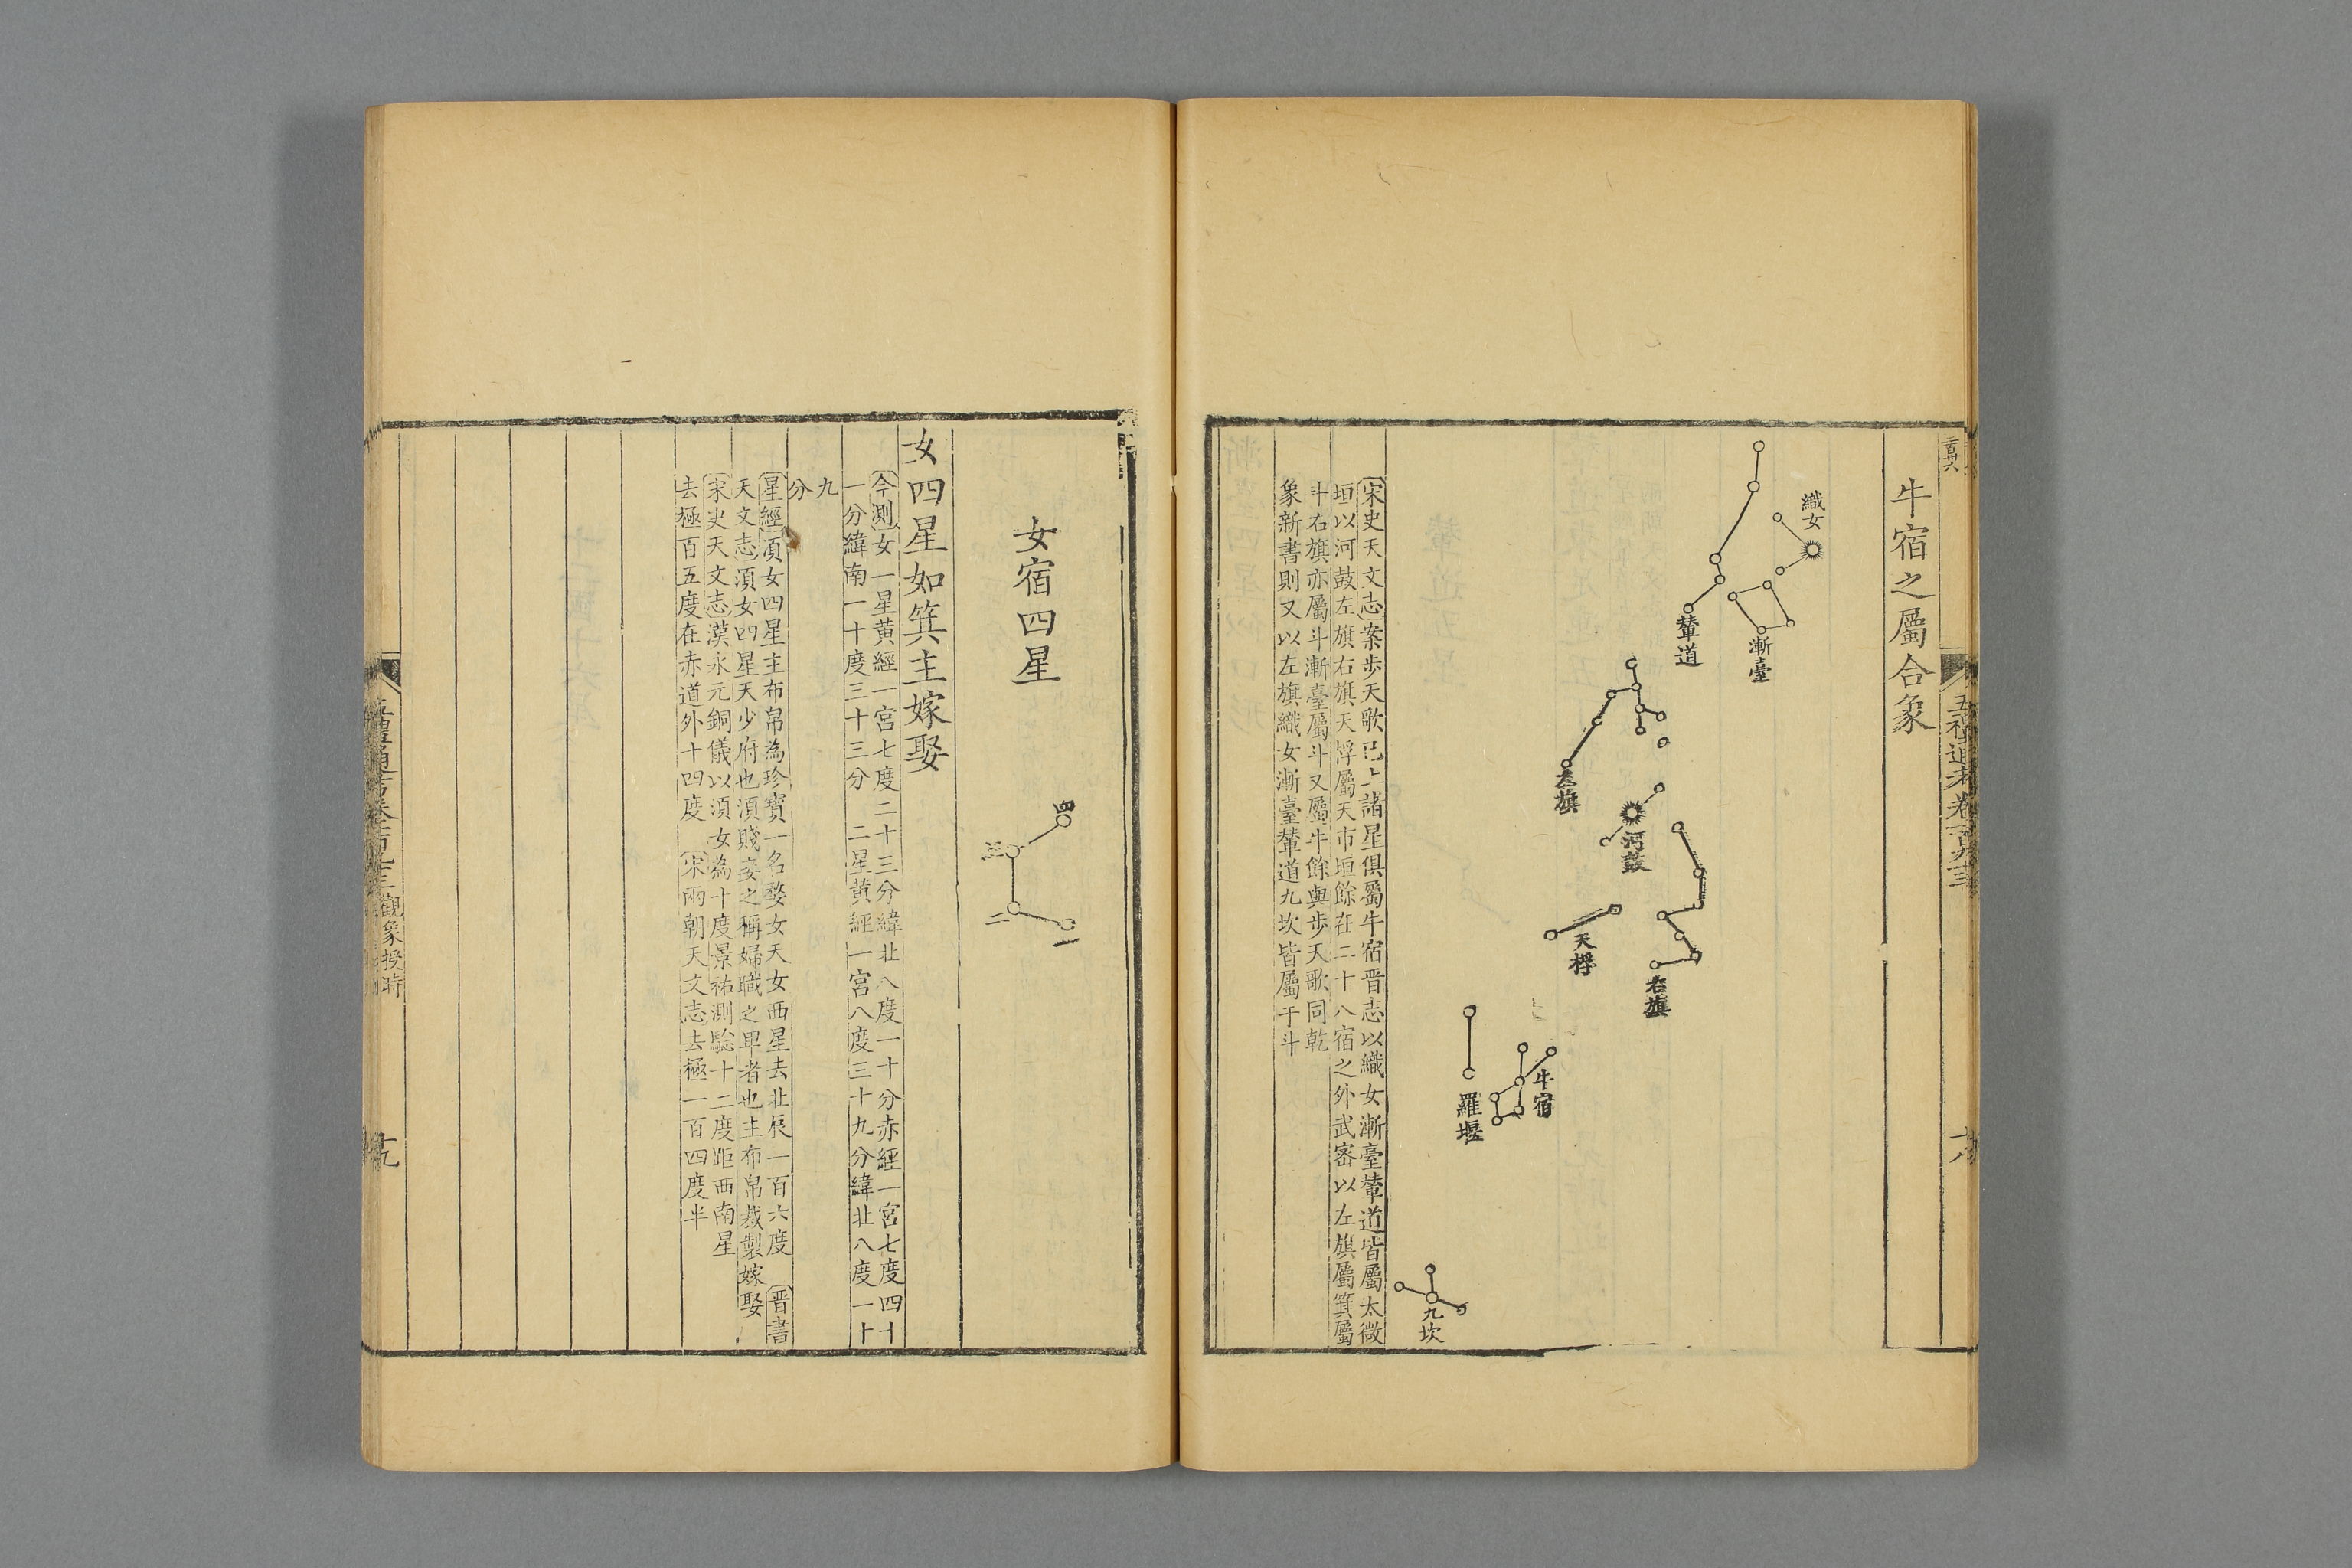 牛宿之屬合象
織女
漸臺
輦道
左旗
河鼓
右旗
天桴
牛宿
羅堰
九坎
宋史天文志案步天歌已上諸星俱屬牛宿晋志以織女漸臺輦道皆屬太微
垣以河鼓左旗右旗天桴屬天市垣餘在二十八宿之外武密以左旗屬箕屬
斗右旗亦屬斗漸臺屬斗又屬牛餘與步天歌同乾
象新書則又以左旗織女漸臺輦道九坎皆屬于斗
五禮通考卷一百九十三
十八
女宿四星
四
三
二
一
女四星如箕主嫁娶
今測女一星黄經一宮七度二十三分緯北八度一十分赤經一宮七度四十
一分緯南一十度三十三分 二星黄經一宮八度三十九分緯北八度一十
九
分
星經須女四星主布帛為珍寶一名婺女天女西星去北辰一百六度 晋書
天文志須女四星天少府也須賤妾之稱婦職之卑者也主布帛裁製嫁娶
宋史天文志漢永元銅儀以須女為十度景祐測驗十二度距西南星
去極百五度在赤道外十四度 宋兩朝天文志去極一百四度半
觀象授時
十九